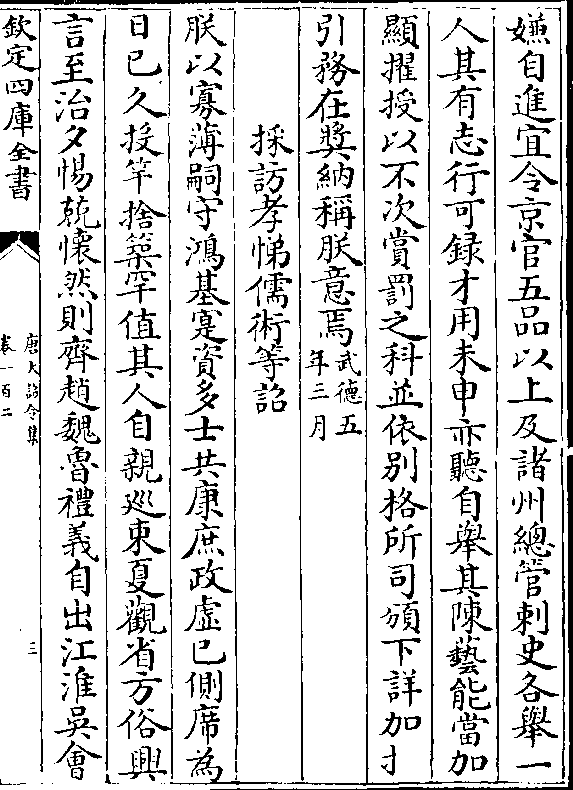 嫌自進宜令京官五品以上及諸州總管刺史各舉一
人其有志行可録才用未申亦聽自舉其陳藝能當加
顯擢授以不次賞罰之科並依别格所司頒下詳加扌
引務在奬納稱朕意焉武德五年三月
採訪孝悌儒術等詔
朕以寡薄嗣守鴻基寔資多士共康庶政虚已側席為
日已久投竿捨築罕值其人自親廵東夏觀省方俗興
言至治夕惕兢懷然則齊趙魏魯禮義自出江淮吳會
欽定四庫全書
唐大詔令集
卷一百二
三